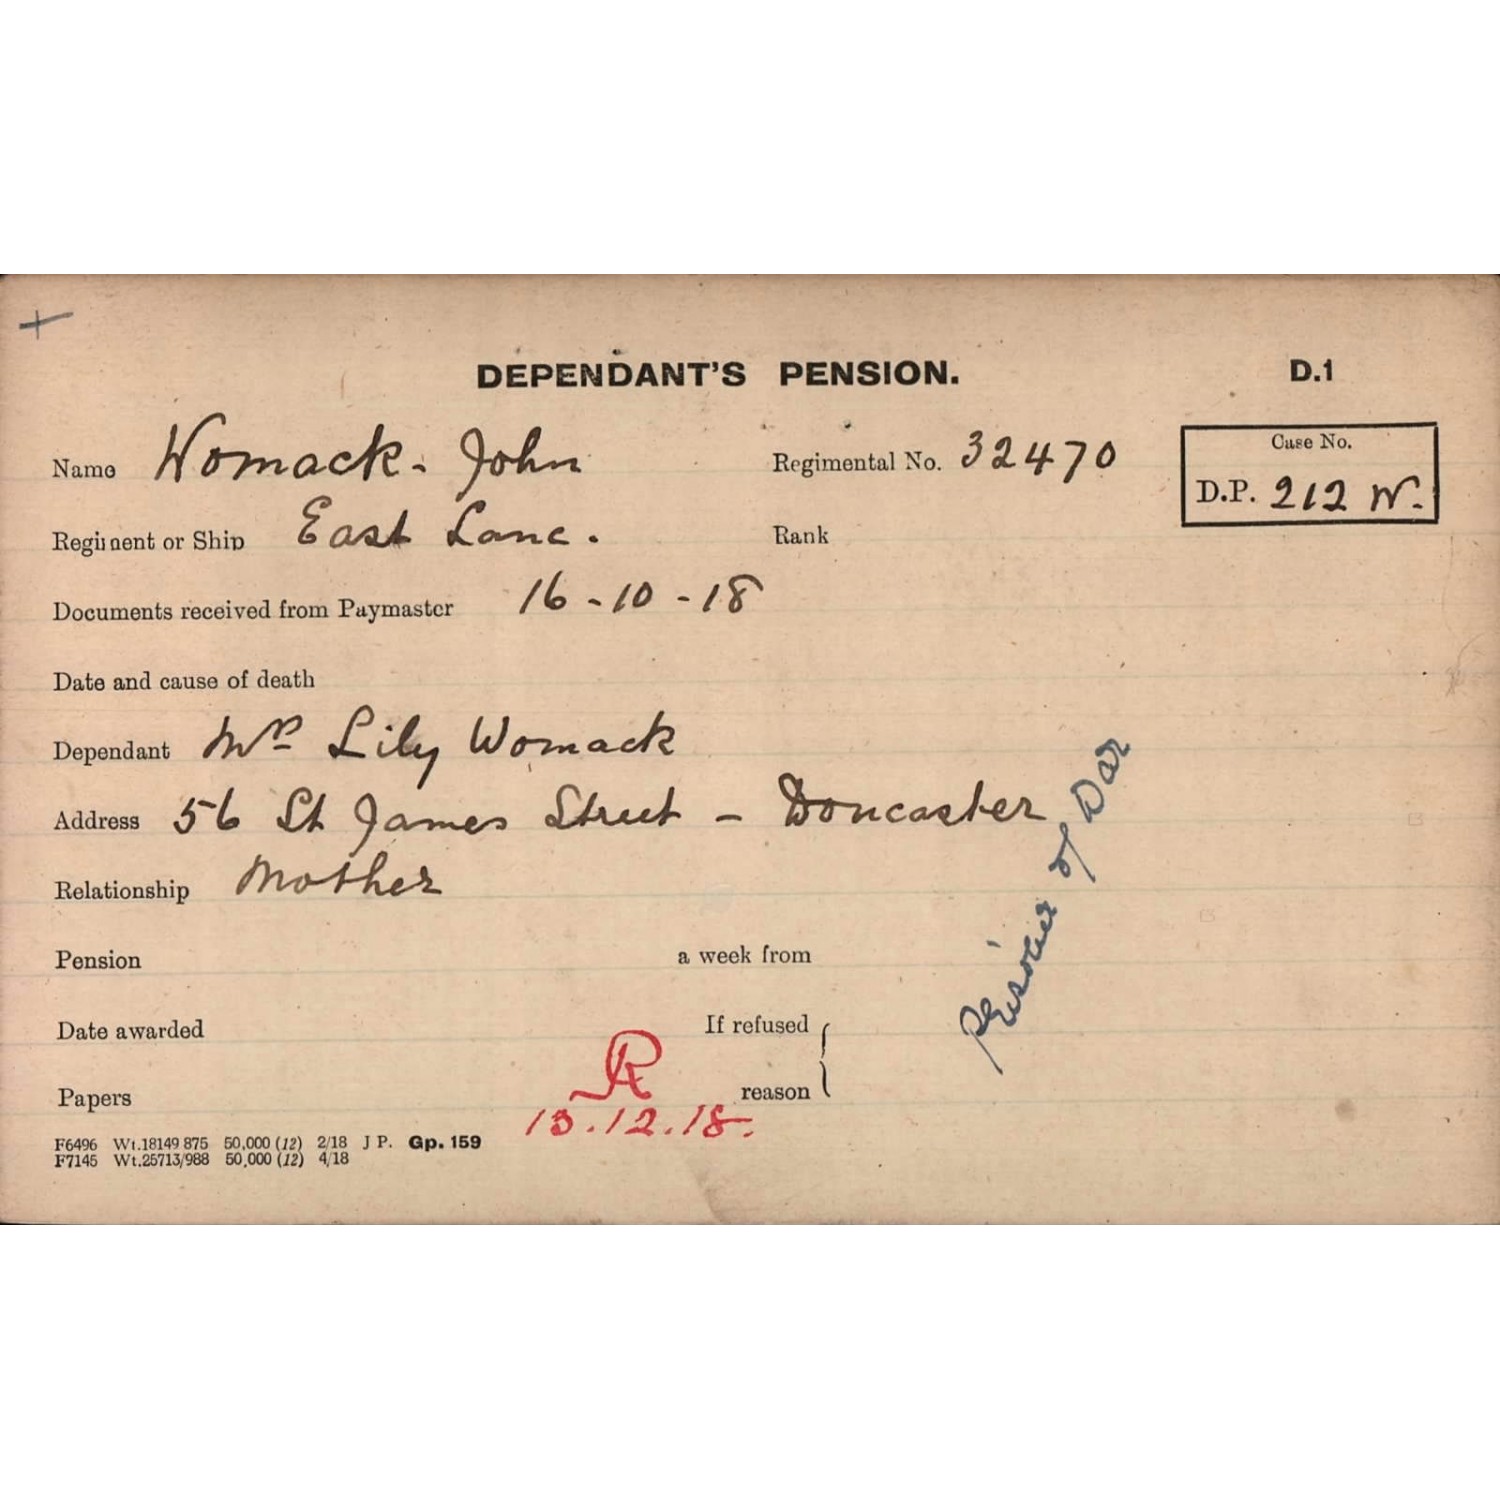 DEPENDANT'S PENSION. D.1
Name Womack. John Regimental No. 32470 Case No.
D.P. 212 W.
Regiment or Ship East Lanc. Rank
Documents received from Paymaster 16-10-18
Date and cause of death
Dependant Mrs Lily Womack
Address 56 St James Street - Doncaster
Relationship Mother
Prisoner of War
Pension a week from
Date awarded If refused
Papers reason
R
13.12.18.
F6496 Wt.18149 875 50,000 (12) 2/18 J P. Gp. 159
F7145 Wt.25713/988 50,000 (12) 4/18